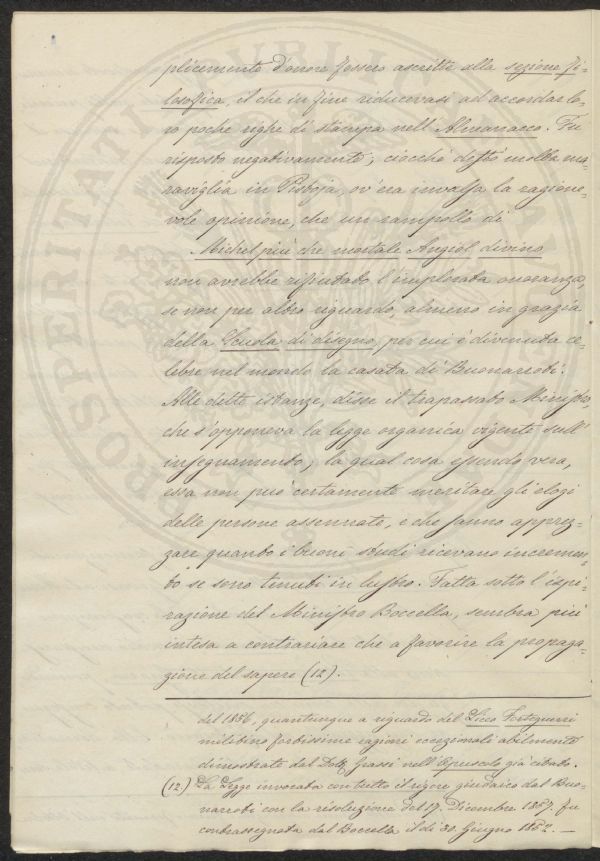 plicemente d'onore fossero ascritte alla sezione fi-
losofica, il che in fine riducevasi ad accordar lo-
ro poche righe di stampa nell'Almanacco. Fu
risposto negativamente; ciocchè destò molta ma-
raviglia in Pistoja, ov'era invalsa la ragione-
vole opinione, che un rampollo di
Michel più che mortale Angiol divino
non avrebbe rifiutato l'implorata onoranza,
se non per altro riguardo, almeno in grazia
della Scuola di disegno, per cui è divenuta ce-
lebre nel mondo la casata di Buonarroti.
Alle dette istanze, disse il trapassato Ministro,
che s'opponeva la legge organica vigente sull'
insegnamento; la qual cosa essendo vera,
essa non può certamente meritare gli elogi
delle persone assennate, e che sanno apprez-
zare quanto i buoni studi ricevano incremen-
to se sono tenuti in lustro. Fatta sotto l'ispi-
razione del Ministro Boccella, sembra più
intesa a contrariare che a favorire la propaga-
zione del sapere (12).
del 1856, quantunque a riguardo del Liceo Forteguerri
militino fortissime ragioni eccezionali abilmente
dimostrate dal Dott. Grassi nell'Opuscolo già citato.
(12.) La Legge invocata con tutto il rigore giudaico dal Buo-
narroti con la risoluzione del 17. Dicembre 1857. fu
contrassegnata dal Boccella il dì 30. Giugno 1852. —
PROSPERITATI PUBLICAE